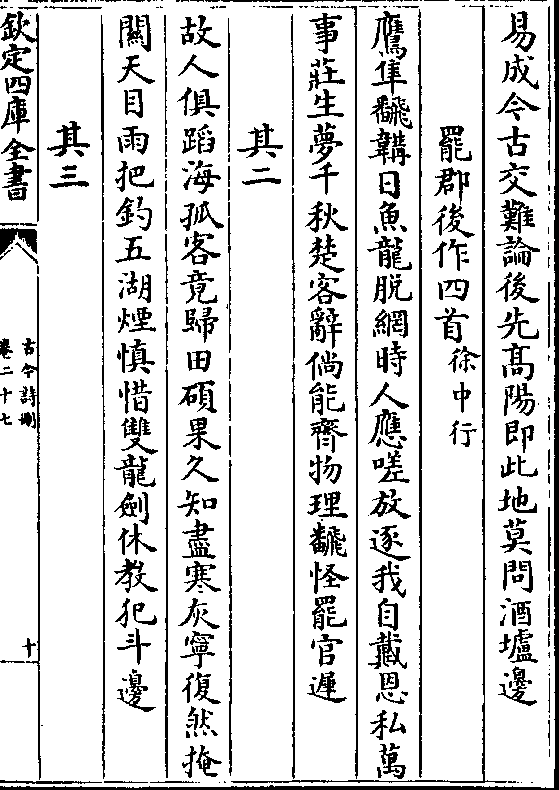 易成今古交難論後先髙陽即此地莫問酒壚邊
罷郡後作四首徐中行
鷹隼飜韝日魚龍脱網時人應嗟放逐我自戴恩私萬
事莊生夢千秋楚客辭倘能齊物理飜怪罷官遲
其二
故人俱蹈海孤客竟歸田碩果久知盡寒灰寧復然掩
關天目雨把釣五湖煙慎惜雙龍劍休教犯斗邊
其三
欽定四庫全書
古今詩刪
卷二十七
十